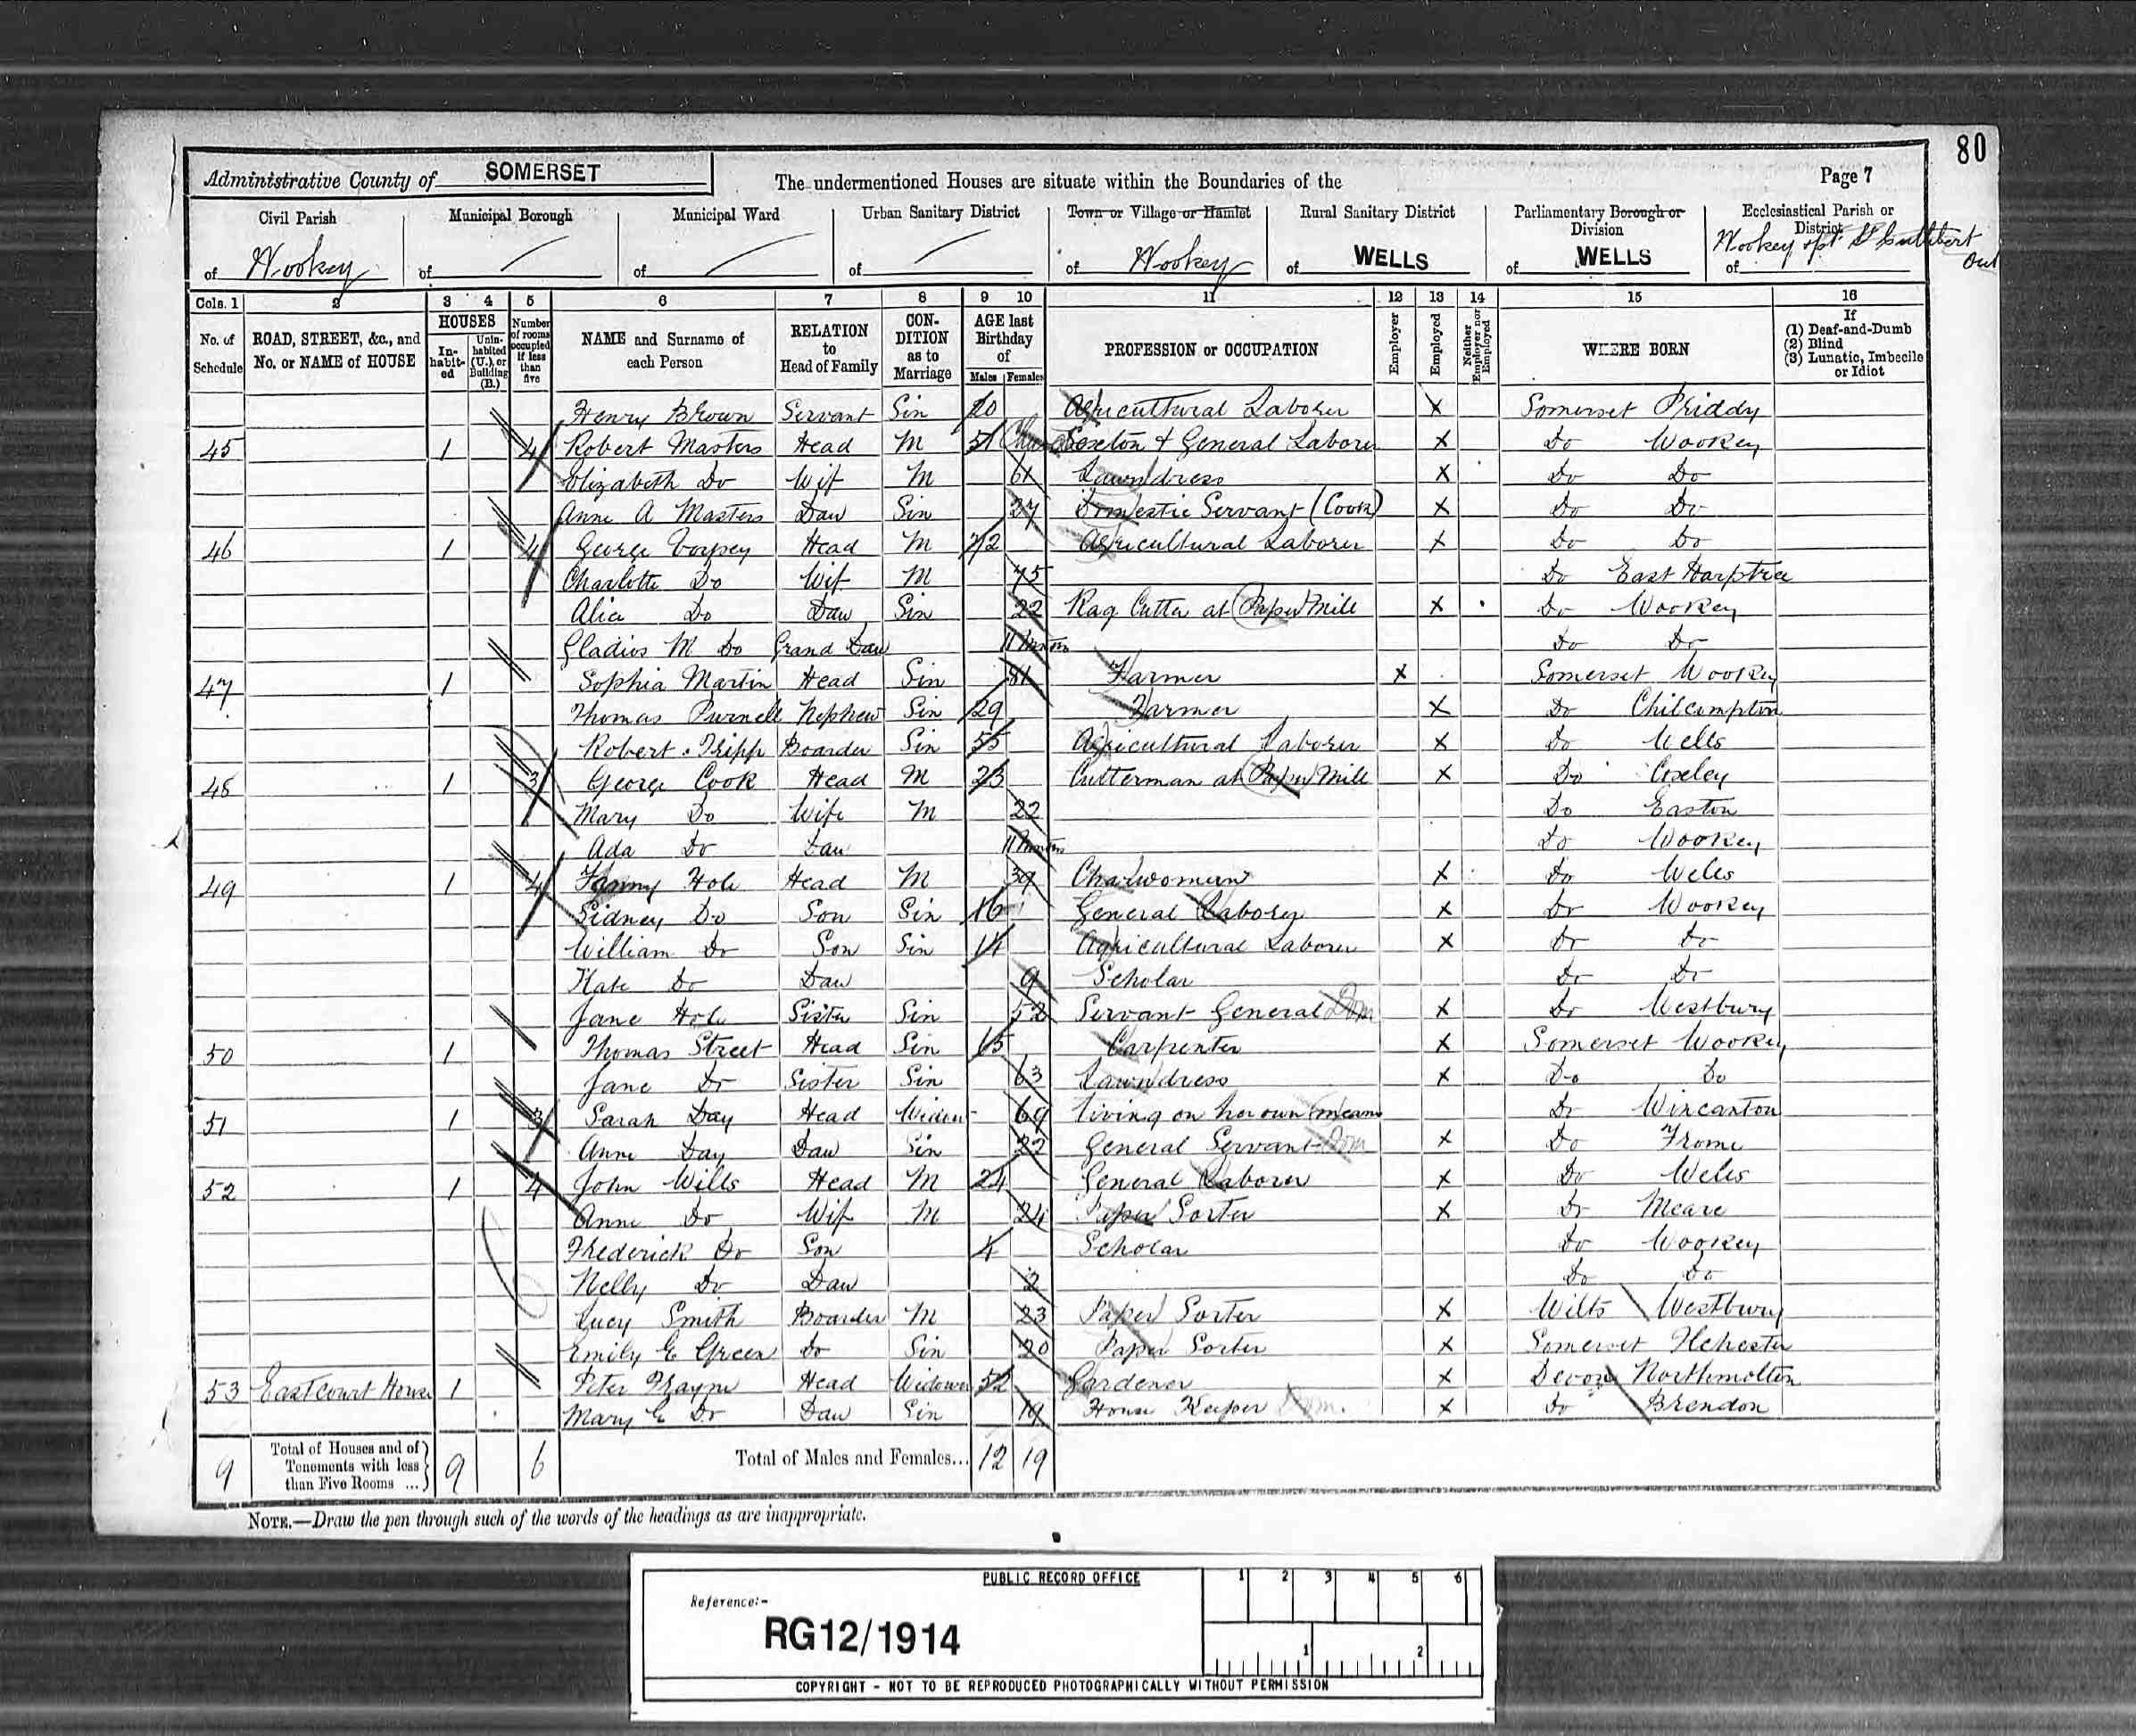 80
Administrative County of SOMERSET The undermentioned Houses are situate within the Boundaries of the Page 7
Civil Parish Municipal Borough Municipal Ward Urban Sanitary District Town or Village or Hamlet Rural Sanitary District Parliamentary Borough or Division Ecclesiastical Parish or District
of Wookey of of of of Wookey of WELLS of WELLS of Wookey & pt St Cuthbert Out
Cols. 1 2 3 4 5 6 7 8 9 10 11 12 13 14 15 16
No. of Schedule ROAD, STREET, &c., and No. or NAME of HOUSE HOUSES Inhabited Uninhabited (U.), or Building (B.) Number of rooms occupied if less than five NAME and Surname of each Person RELATION to Head of Family CONDITION as to Marriage AGE last Birthday of Males Females PROFESSION or OCCUPATION Employer Employed Neither Employer nor Employed WHERE BORN If (1) Deaf-and-Dumb (2) Blind (3) Lunatic, Imbecile or Idiot
Henry Brown Servant Sin 20 Agricultural Laborer X Somerset Priddy
45 1 4 Robert Masters Head M 51 Sexton & General Laborer X Do Wookey
Elizabeth Do Wif M 61 Laundress X Do Do
Anne A Masters Daw Sin 27 Domestic Servant (Cook) X Do Do
46 1 4 George Head M 72 Agricultural Laborer X Do Do
Charlotte Do Wif M 75 Do East Harptree
Alice Do Daw Sin 22 Rag Cutter at Paper Mill X Do Wookey
Gladios M Do Grand Daw 11 Months Do Do
47 1 Sophia Martin Head Sin 81 Farmer X Somerset Wookey
Thomas Purnell Nephew Sin 29 Farmer X Do Chilcompton
Robert Tripp Boarder Sin 55 Agricultural Laborer X Do Wells
48 1 3 George Cook Head M 23 Cutterman at Paper Mill X Do Coxley
Mary Do Wife M 22 Do Easton
Ada Do Daw 11 Months Do Wookey
49 1 4 Fanny Hole Head M 39 Charwoman X Do Wells
Sidney Do Son Sin 16 General Laborer X Do Wookey
William Do Son Sin 14 Agricultural Laborer X Do Do
Kate Do Daw 9 Scholar Do Do
Jane Hole Sister Sin 52 Servant General Dom X Do Westbury
50 1 Thomas Street Head Sin 65 Carpenter X Somerset Wookey
Jane Do Sister Sin 63 Laundress X Do Do
51 1 3 Sarah Day Head Widow 69 living on her own means Do Wincanton
Anne Day Daw Sin 22 General Servant Dom X Do Frome
52 1 4 John Wills Head M 24 General Laborer X Do Wells
Anne Do Wif M 24 Paper Sorter X Do Meare
Frederick Do Son 4 Scholar Do Wookey
Nelly Do Daw 2 Do Do
Lucy Smith Boarder M 23 Paper Sorter X Wilts Westbury
Emily E Green Do Sin 20 Paper Sorter X Somerset Ilchester
53 Eastcourt House 1 Peter Frayne Head Widower 52 Gardener X Devon Northmolton
Mary E Do Daw Sin 19 House Keeper Dom. X Do Brendon
9 Total of Houses and of Tenements with less than Five Rooms ... 9 6 Total of Males and Females... 12 19
NOTE.—Draw the pen through such of the words of the headings as are inappropriate.
PUBLIC RECORD OFFICE
1 2 3 4 5 6
Reference:-
RG12/1914
1 2
COPYRIGHT - NOT TO BE REPRODUCED PHOTOGRAPHICALLY WITHOUT PERMISSION